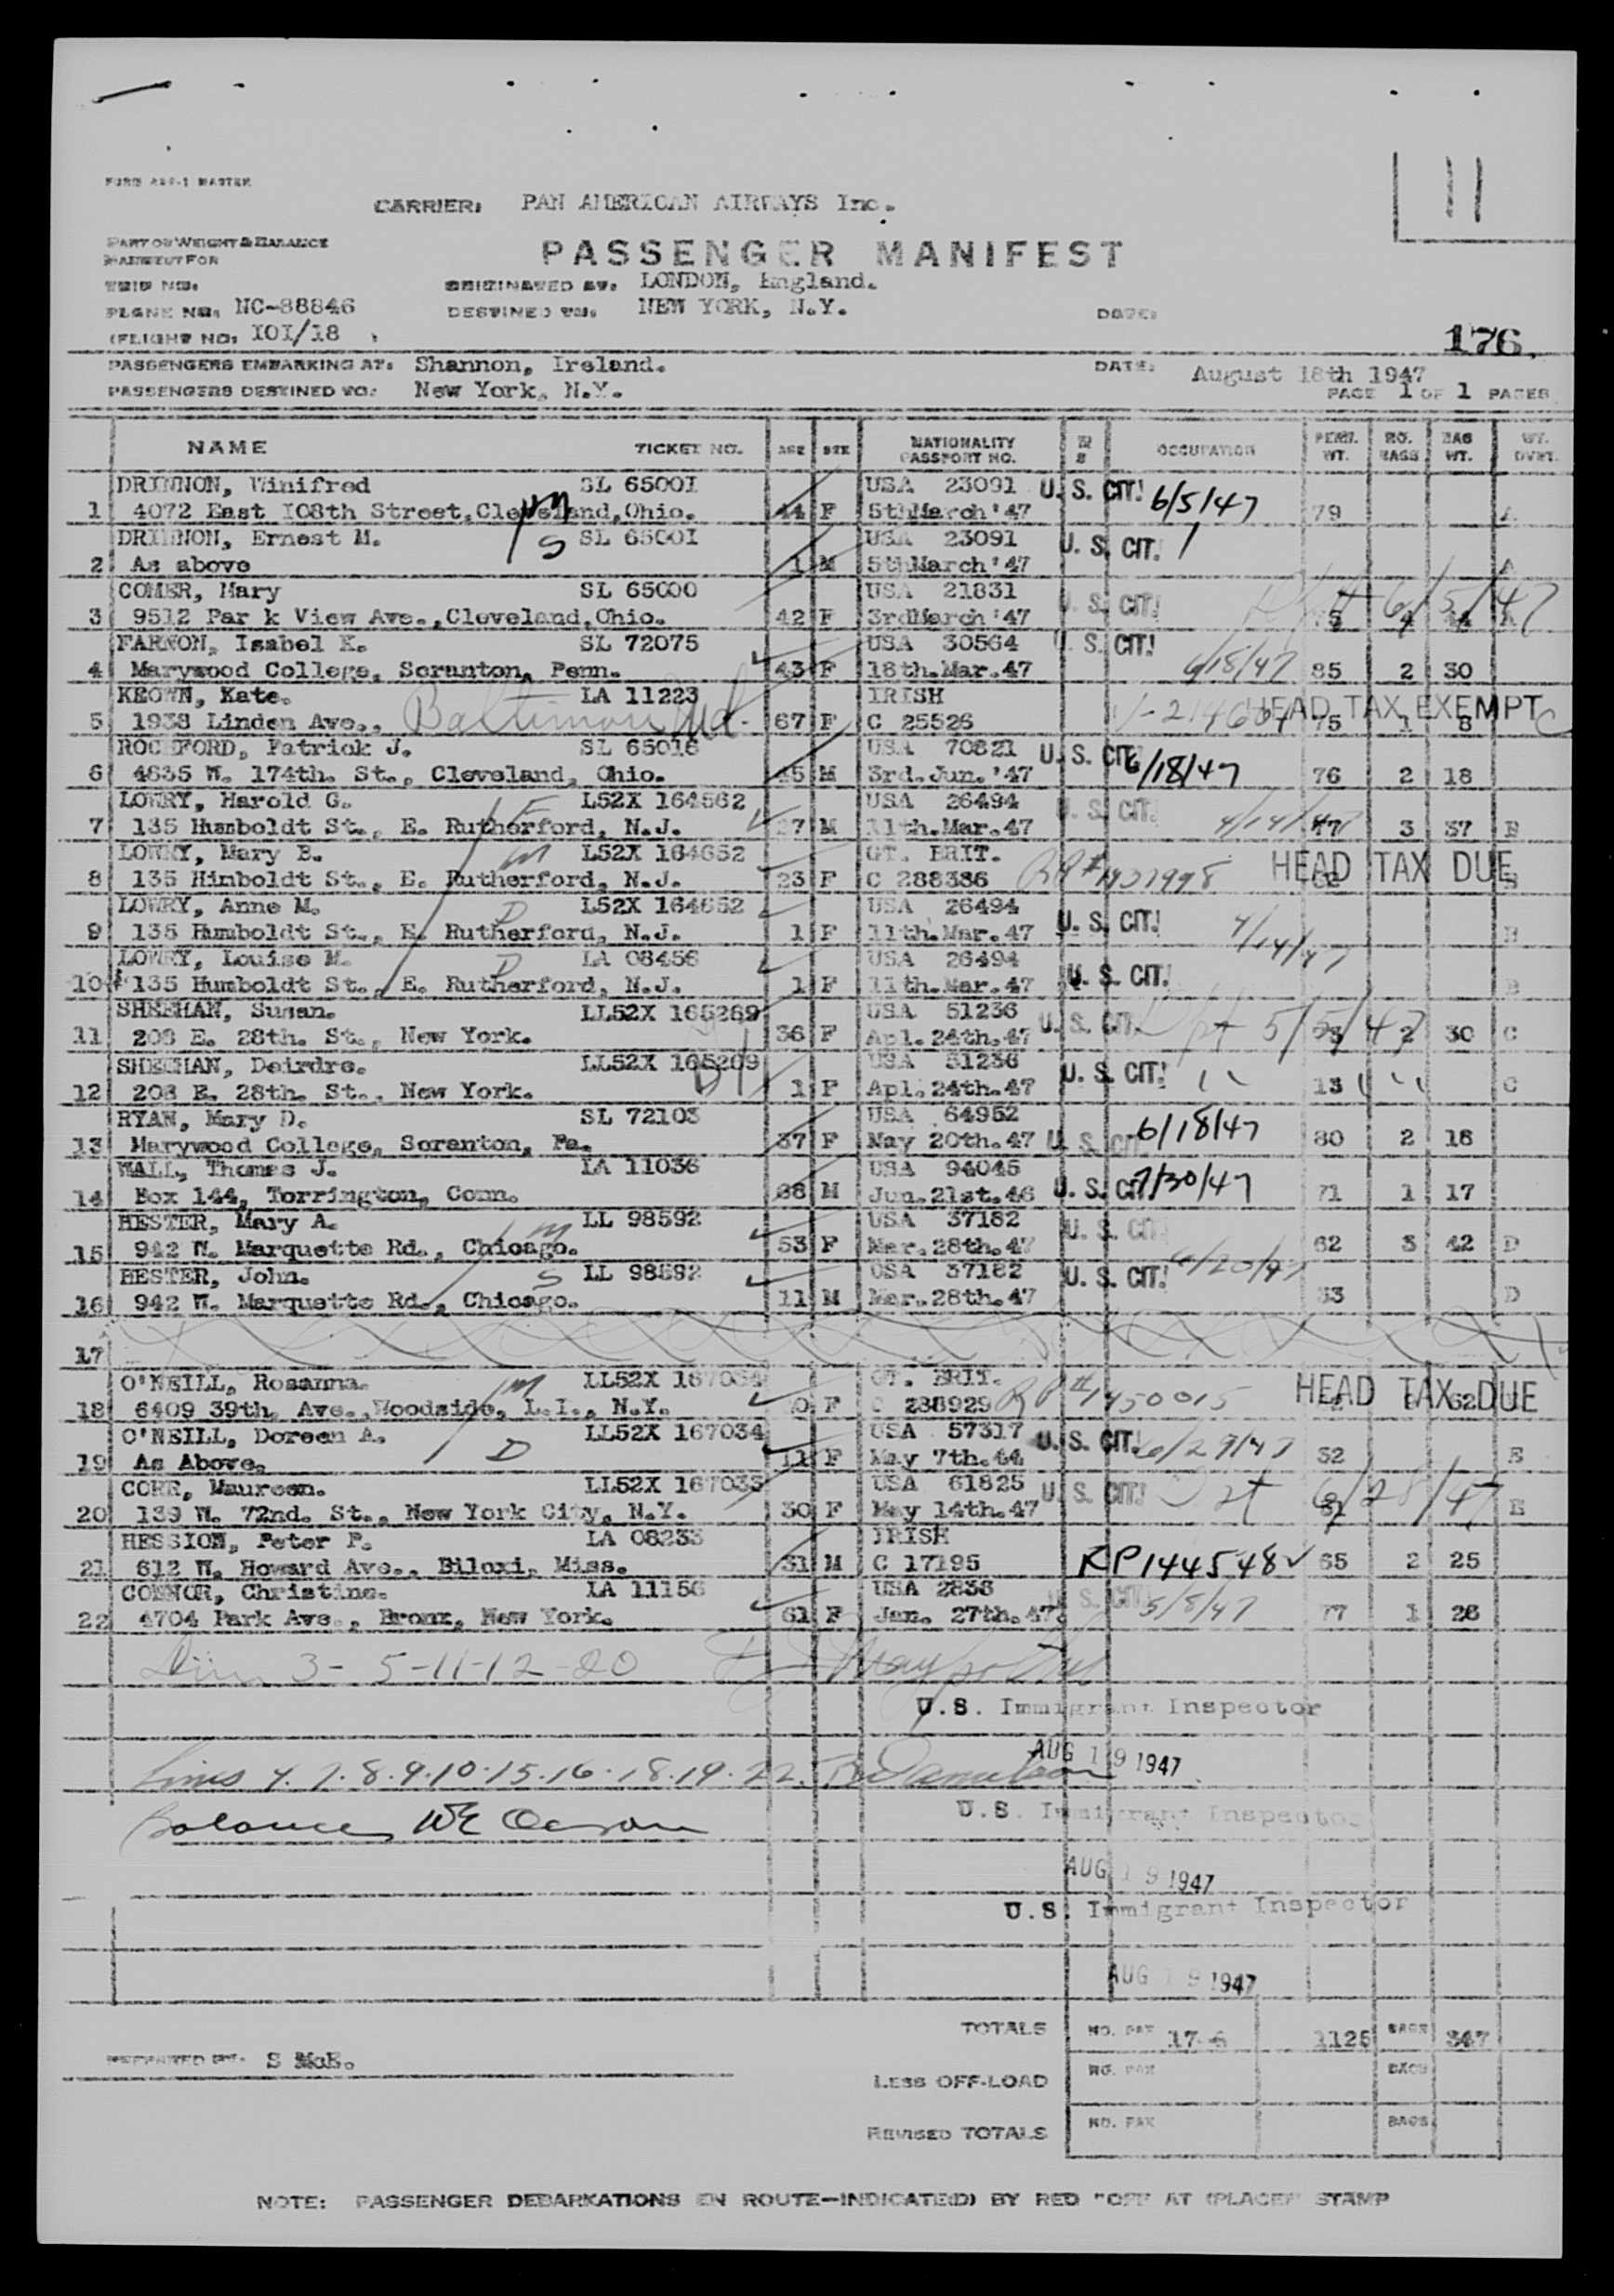 11
FORM
MASTER
CARRIER: PAN AMERICAN AIRWAYS Inc.
PART OF WEIGHT & BALANCE
MANIFEST FOR
PASSENGER MANIFEST
TRIP NO.
ORIGINATED AT: LONDON, England.
PLANE NO: NC-88846
DESTINED TO: NEW YORK, N.Y.
DATE:
(FLIGHT NO: IOI/18
176.
PASSENGERS EMBARKING AT: Shannon, Ireland.
DATE: August 18th 1947
PASSENGERS DESTINED TO: New York, N.Y.
PAGE 1 OF 1 PAGES
NAME TICKET NO. AGE SEX NATIONALITY PASSPORT NO. OCCUPATION WT. NO. BAGS BAG WT. WT.
DRINNON, Winifred SL 6500I USA 23091 U. S. CIT! 6/5/47
1 4072 East I08th Street, Cleveland, Ohio. m 44 F 5thMarch'47 79 A
DRINNON, Ernest M. S SL 6500I USA 23091 U. S. CIT!
2 As above 1 M 5thMarch'47 A
COMER, Mary SL 65000 USA 21831 U. S. CIT! 6/5/47
3 9512 Par k View Ave., Cleveland, Ohio. 42 F 3rdMarch'47
FARNON, Isabel K. SL 72075 USA 30564 U. S. CIT!
4 Marywood College, Scranton, Penn. 43 F 18th.Mar.47 6/18/47 85 2 30
KEOWN, Kate. LA 11223 IRISH HEAD TAX EXEMPT
5 1938 Linden Ave., Baltimore Md. 67 F C 25526 75 1 8 C
ROCHFORD, Patrick J. SL 65016 USA 70821 U. S. CIT! 6/18/47
6 4635 W. 174th. St., Cleveland, Ohio. 45 M 3rd.Jun.'47 76 2 18
LOWRY, Harold G. F L52X 164562 USA 26494 U. S. CIT!
7 135 Humboldt St., E. Rutherford, N.J. M 11th.Mar.47 4/14/47 3 37 B
LOWRY, Mary B. m L52X 164652 GT. BRIT. HEAD TAX DUE
8 135 Himboldt St., E. Rutherford, N.J. 23 F C 288386 B
LOWRY, Anne M. D L52X 164652 USA 26494 U. S. CIT! 4/14/47
9 135 Humboldt St., E. Rutherford, N.J. 1 F 11th.Mar.47 B
LOWRY, Louise M. D LA 08456 USA 26494 U. S. CIT.
10 135 Humboldt St., E. Rutherford, N.J. 1 F 11th.Mar.47 B
SHEEHAN, Susan. LL52X 165289 USA 51236 U. S. CIT. 5/5/47
11 208 E. 28th. St., New York. 36 F Apl.24th.47 2 30 C
SHEEHAN, Deirdre. LL52X 165289 USA 51236 U. S. CIT!
12 208 E. 28th. St., New York. 1 F Apl.24th.47 13 C
RYAN, Mary D. SL 72103 USA 64952 6/18/47
13 Marywood College, Scranton, Pa. 37 F May 20th.47 U. S. CIT. 80 2 18
WALL, Thomas J. LA 11036 USA 94045 7/30/47
14 Box 144, Torrington, Conn. 68 M Jun.21st.46 U. S. CIT 71 1 17
HESTER, Mary A. m LL 98592 USA 37182 U. S. CIT
15 942 W. Marquette Rd., Chicago. 53 F Mar.28th.47 62 3 42 D
HESTER, John. S LL 98592 USA 37182 U. S. CIT! 6/20/47
16 942 W. Marquette Rd., Chicago. 11 M Mar.28th.47 33 D
17
O'NEILL, Rosanna. m LL52X 167034 GT. BRIT. HEAD TAX DUE
18 6409 39th. Ave., Woodside, L.I., N.Y. F C 288929 62
O'NEILL, Doreen A. D LL52X 167034 USA 57317 U. S. CIT. 6/29/47
19 As Above. 11 F May 7th.44 32 E
CORR, Maureen. LL52X 167035 USA 61825 U. S. CIT! 6/28/47
20 139 W. 72nd. St., New York City, N.Y. 30 F May 14th.47 E
HESSION, Peter P. LA 08233 IRISH
21 612 W. Howard Ave., Biloxi, Miss. 31 M C 17195 RP144548 65 2 25
CONNOR, Christine. LA 11156 USA 2838 S. CIT! 5/8/47
22 4704 Park Ave., Bronx, New York. 61 F Jan. 27th.47. 77 1 28
3- 5-11-12-20
U.S. Immigrant Inspector
AUG 19 1947
Lines 4.7.8.9.10.15.16.18.19.22.
U.S. Immigrant Inspector
Balance
AUG 19 1947
U.S. Immigrant Inspector
AUG 19 1947
TOTALS NO. PAX 17-5 1125 BAGS 347
PREPARED BY. S McE.
LESS OFF-LOAD NO. PAX BAGS
REVISED TOTALS NO. PAX BAGS
NOTE: PASSENGER DEBARKATIONS EN ROUTE—INDICATE(D) BY RED "OFF AT (PLACE)" STAMP